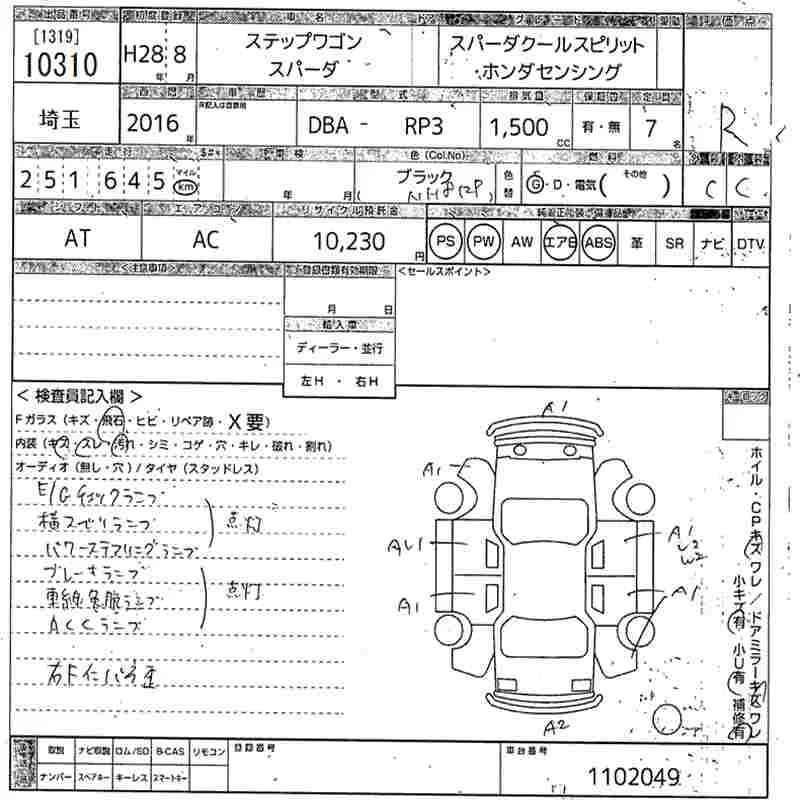 出品番号 初度登録 車名 ドア グレード
[1319]
10310
H28 8
年 月
ステップワゴン
スパーダ
スパーダクールスピリット
・ホンダセンシング
評価点
R
埼玉
2016年
車歴
型式
DBA - RP3
排気量
1,500 CC
有・無
定員
7名
走行
251645
マイル
km
車検
年 月
色 (Col.No)
ブラック
色替
燃料
G・D・電気( その他 )
C C
シフト
AT
エアコン
AC
リサイクル預託金
10,230円
PS PW AW エアB ABS 革 SR ナビ DTV
<注意事項>
登録書類有効期限
月 日
<セールスポイント>
輸入車
ディーラー・並行
左H ・ 右H
<検査員記入欄>
Fガラス (キズ・飛石・ヒビ・リペア跡・X要)
内装 (キズ・スレ・汚れ・シミ・コゲ・穴・キレ・破れ・割れ)
オーディオ (無し・穴) / タイヤ (スタッドレス)
E/Gチェックランプ
横スベリランプ
点灯
パワーステアリングランプ
ブレーキランプ
点灯
ACCランプ
A1
A1
A1
A1
A1
A2
ホイル・CPキズ ワレ / ドアミラーキズ ワレ
小キズ有 小U有 補修有
取説 ナビ取説 ロム/SD B-CAS リモコン
ナンバー スペアキー キーレス スマートキー
登録番号
車台番号
1102049